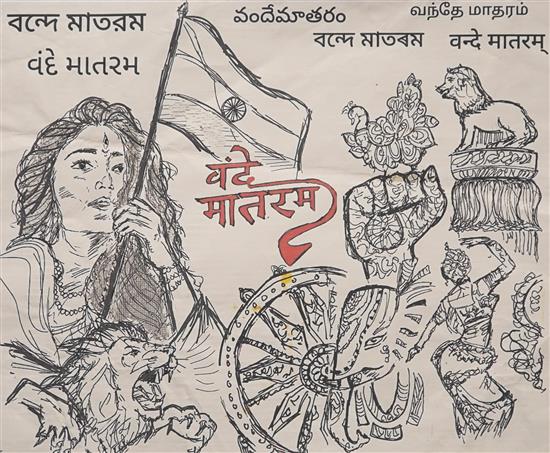 বন্দে মাতরম
વંદે માતરમ
వందేమాతరం
வந்தே மாதரம்
বন্দে মাতৰম
वन्दे मातरम्
वंदे
मातरम